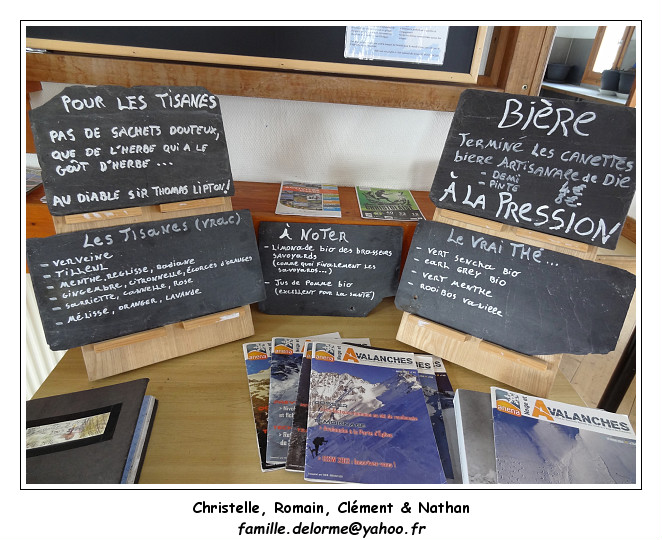 POUR LES TISANES
PAS DE SACHETS DOUTEUX,
QUE DE L'HERBE QUI A LE
GOÛT D'HERBE ...
AU DIABLE SIR THOMAS LIPTON!
BIÈRE
TERMINÉ LES CANETTES
bière ARTISANALE de DIE
- DEMI 4€
- PINTE 8€
À LA PRESSION!
LES TISANES (VRAC)
- VERVEINE
- TILLEUL
- MENTHE, REGLISSE, BADIANE
- GINGEMBRE, CITRONNELLE, ÉCORCES D'ORANGES
- SARRIETTE, CANNELLE, ROSE
- MÉLISSE, ORANGER, LAVANDE
À NOTER
- LIMONADE bio DES BRASSERS
SAVOYARDS
(COMME QUOI FINALEMENT LES
SAVOYARDS...)
- JUS DE POMME bio
(EXCELLENT POUR LA SANTÉ)
LE VRAI THÉ...
- VERT SENCHA BIO
- EARL GREY BIO
- VERT MENTHE
- ROOIBOS VANILLE
anena
AVALANCHES
anena
Neige et AVALANCHES
Christelle, Romain, Clément & Nathan
famille.delorme@yahoo.fr